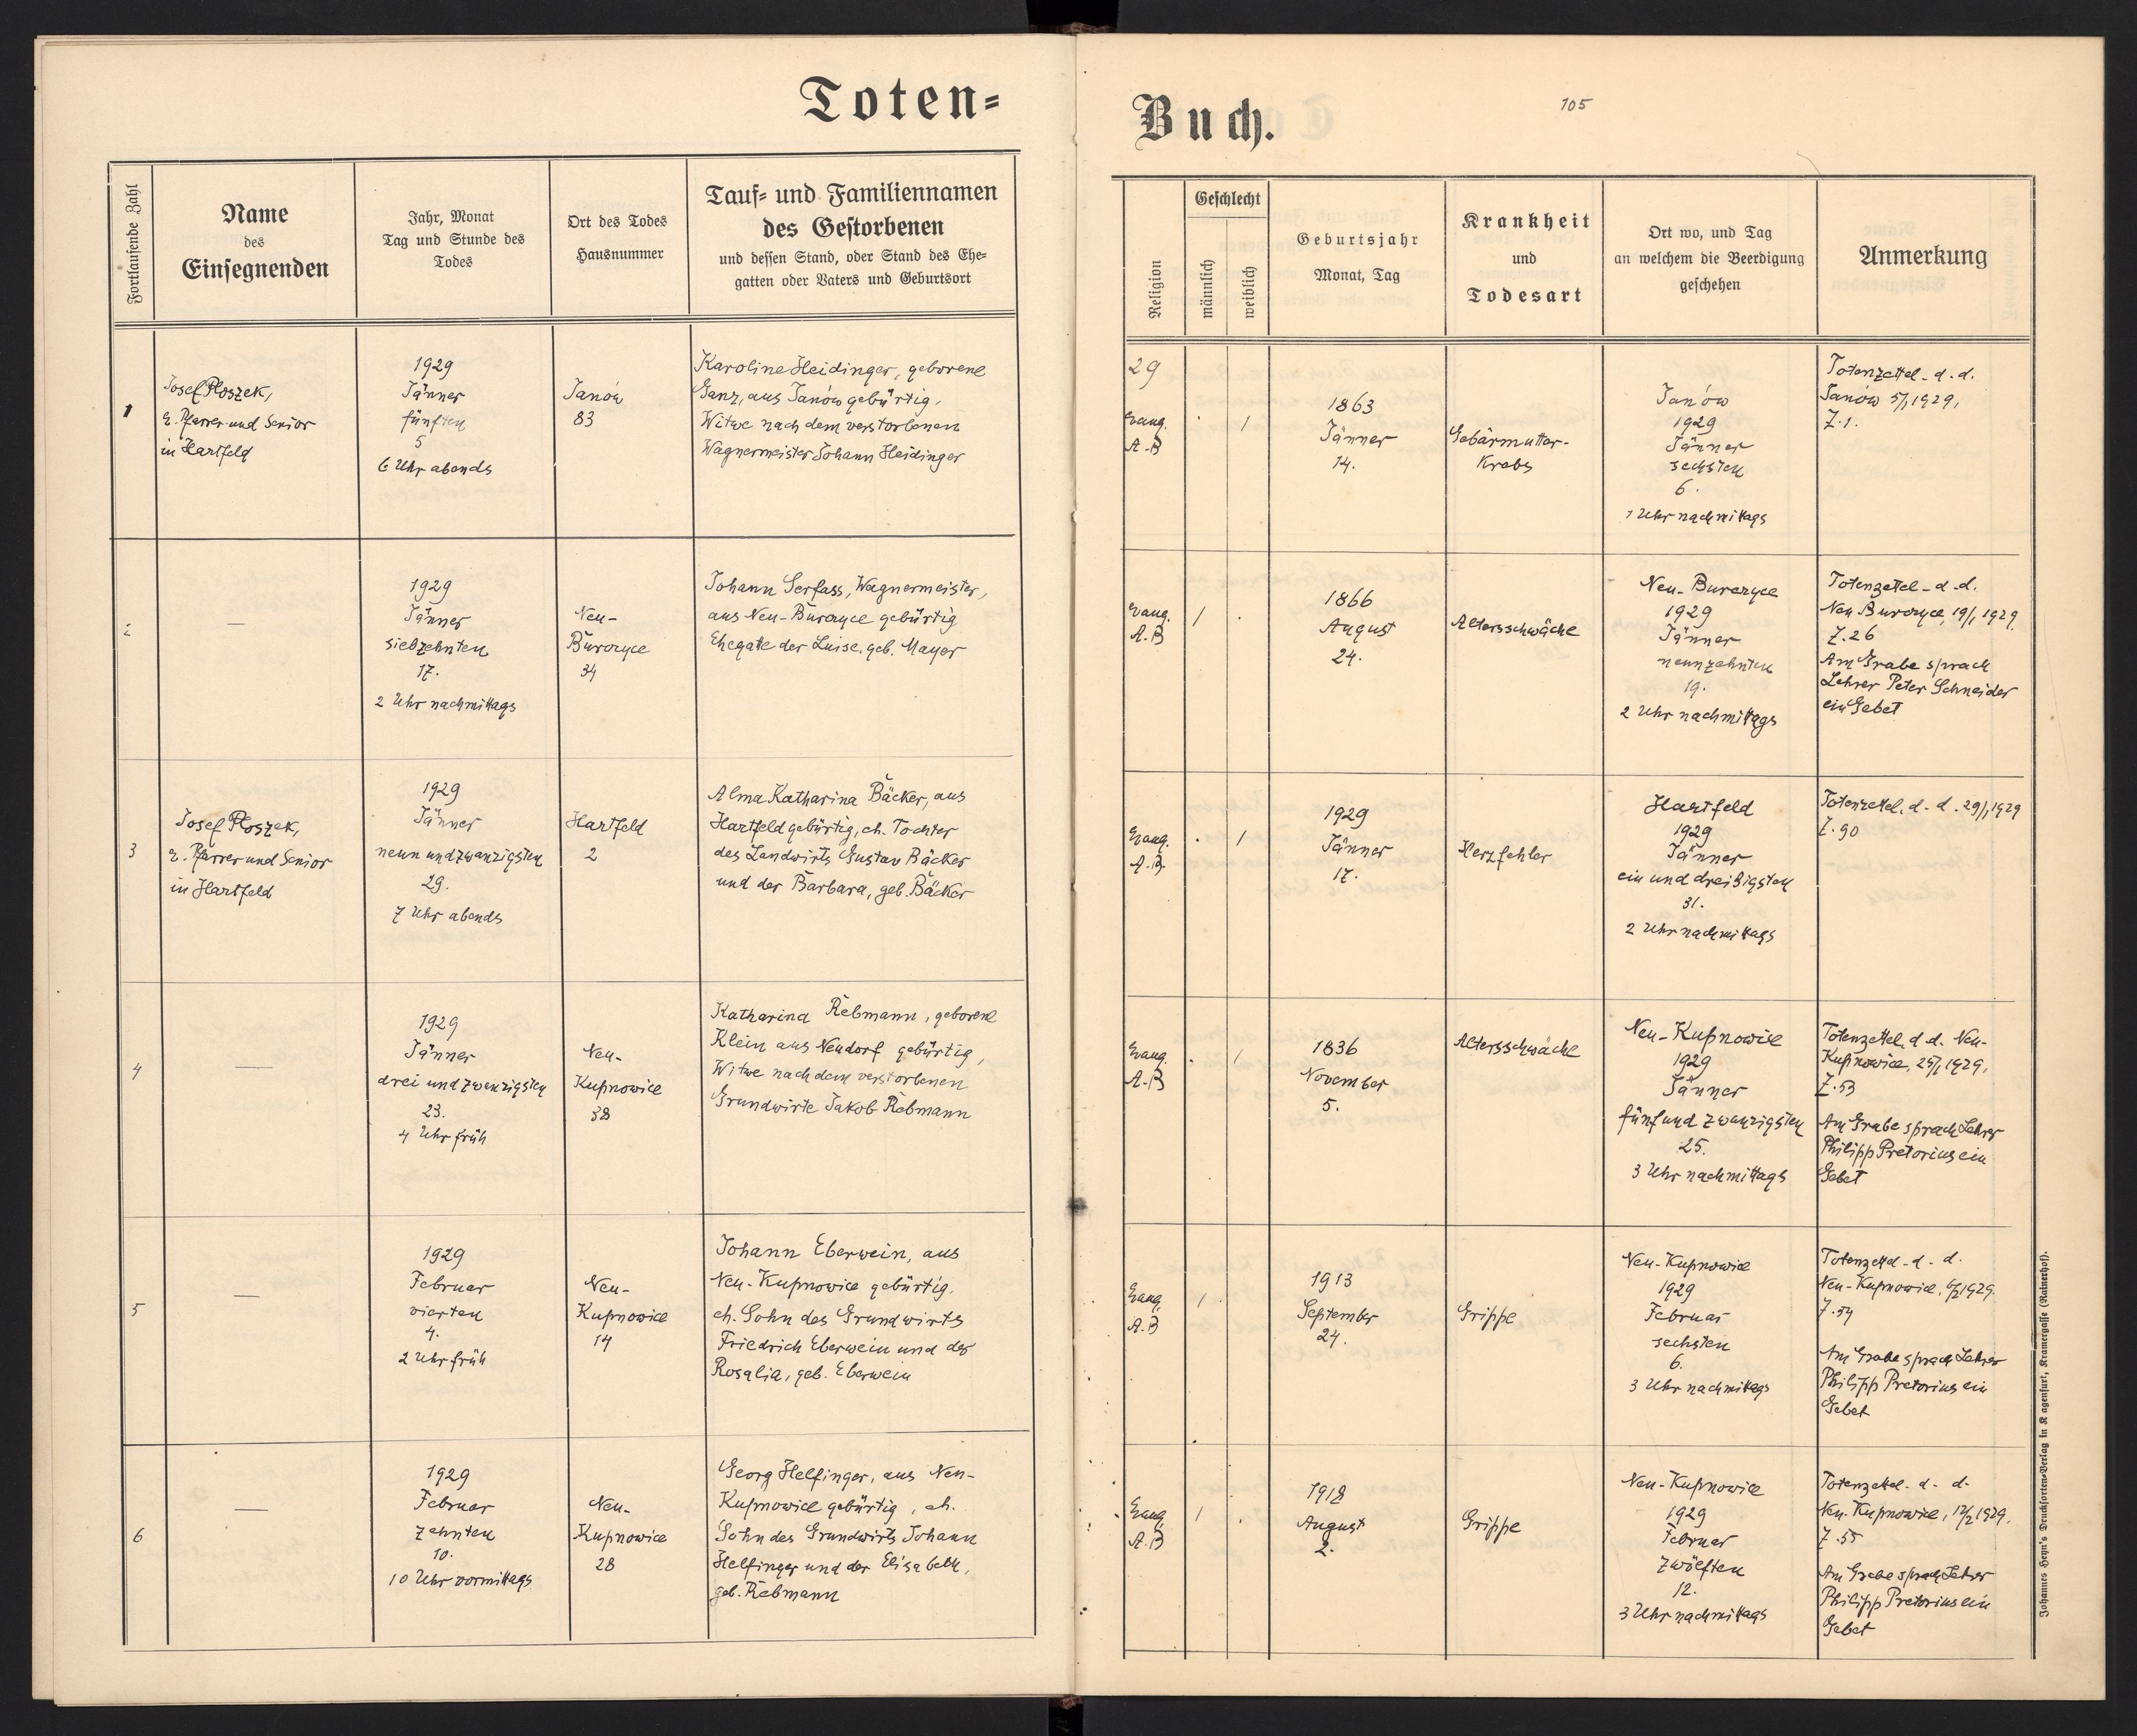 Toten=
Fortlaufende Zahl
Name
des
Einsegnenden
Jahr, Monat
Tag und Stunde des
Todes
Ort des Todes
Hausnummer
Tauf= und Familiennamen
des Gestorbenen
und dessen Stand, oder Stand des Ehe=
gatten oder Vaters und Geburtsort
1
Josef Ploszek,
e. Pfarrer und Senior
in Hartfeld
1929
Jänner
fünften
5
6 Uhr abends
Janów
83
Karoline Heidinger, geborene
Ganz, aus Janów gebürtig,
Witwe nach dem verstorbenen
Wagnermeister Johann Heidinger
2
—
1929
Jänner
siebzehnten
17.
2 Uhr nachmittags
Neu-
Burczyce
34
Johann Serfass, Wagnermeister,
aus Neu-Burczyce gebürtig
Ehegatte der Luise, geb. Mayer
3
Josef Ploszek,
e. Pfarrer und Senior
in Hartfeld
1929
Jänner
neun und zwanzigsten
29.
7 Uhr abends
Hartfeld
2
Alma Katharina Bäcker, aus
Hartfeld gebürtig, eh. Tochter
des Landwirts Gustav Bäcker
und der Barbara, geb. Bäcker
4
—
1929
Jänner
drei und zwanzigsten
23.
4 Uhr früh
Neu-
Kupnowice
38
Katharina Rebmann, geborene
Klein aus Neudorf gebürtig,
Witwe nach dem verstorbenen
Grundwirte Jakob Rebmann
5
—
1929
Februar
vierten
4.
2 Uhr früh
Neu-
Kupnowice
14
Johann Eberwein, aus
Neu-Kupnowice gebürtig,
eh. Sohn des Grundwirts
Friedrich Eberwein und der
Rosalia, geb. Eberwein
6
—
1929
Februar
zehnten
10.
10 Uhr vormittags
Neu-
Kupnowice
28
Georg Helfinger, aus Neu-
Kupnowice gebürtig, eh.
Sohn des Grundwirts Johann
Helfinger und der Elisabeth,
geb. Rebmann
Buch.
105
Religion
Geschlecht
männlich
weiblich
Geburtsjahr
Monat, Tag
Krankheit
und
Todesart
Ort wo, und Tag
an welchem die Beerdigung
geschehen
Anmerkung
29
Evang.
A.B
. 1
1863
Jänner
14.
Gebärmutter-
Krebs
Janów
1929
Jänner
sechsten
6.
1 Uhr nachmittags
Totenzettel d.d.
Janów 5/1 1929,
Z.1.
Evang.
A.B
1 .
1866
August
24.
Altersschwäche
Neu-Burczyce
1929
Jänner
neunzehnten
19.
2 Uhr nachmittags
Totenzettel d.d.
Neu Burczyce, 19/1 1929,
Z.26
Am Grabe sprach
Lehrer Peter Schneider
ein Gebet
Evang.
A.B.
. 1
1929
Jänner
17.
Herzfehler
Hartfeld
1929
Jänner
ein und dreißigsten
31.
2 Uhr nachmittags
Totenzettel. d. d. 29/1 1929
Z.90
Evang.
A.B
. 1
1836
November
5.
Altersschwäche
Neu-Kupnowice
1929
Jänner
fünf und zwanzigsten
25.
3 Uhr nachmittags
Totenzettel. d.d. Neu-
Kupnowice, 25/1 1929,
Z.53
Am Grabe sprach Lehrer
Philipp Pretorius ein
Gebet
Evang.
A.B
1 .
1913
September
24.
Grippe
Neu-Kupnowice
1929
Februar
sechsten
6.
3 Uhr nachmittags
Totenzettel d. d.
Neu-Kupnowice, 6/2 1929.
Z.54
Am Grabe sprach Lehrer
Philipp Pretorius ein
Gebet
Evang.
A.B
1 .
1918
August
2.
Grippe
Neu-Kupnowice
1929
Februar
zwölften
12.
3 Uhr nachmittags
Totenzettel. d. d.
Neu-Kupnowice, 12/2 1929.
Z.55
Am Grabe sprach Lehrer
Philipp Pretorius ein
Gebet
Johannes Heyn's Drucksorten=Verlag in K agenfurt, Kramergasse (Rainerhof).